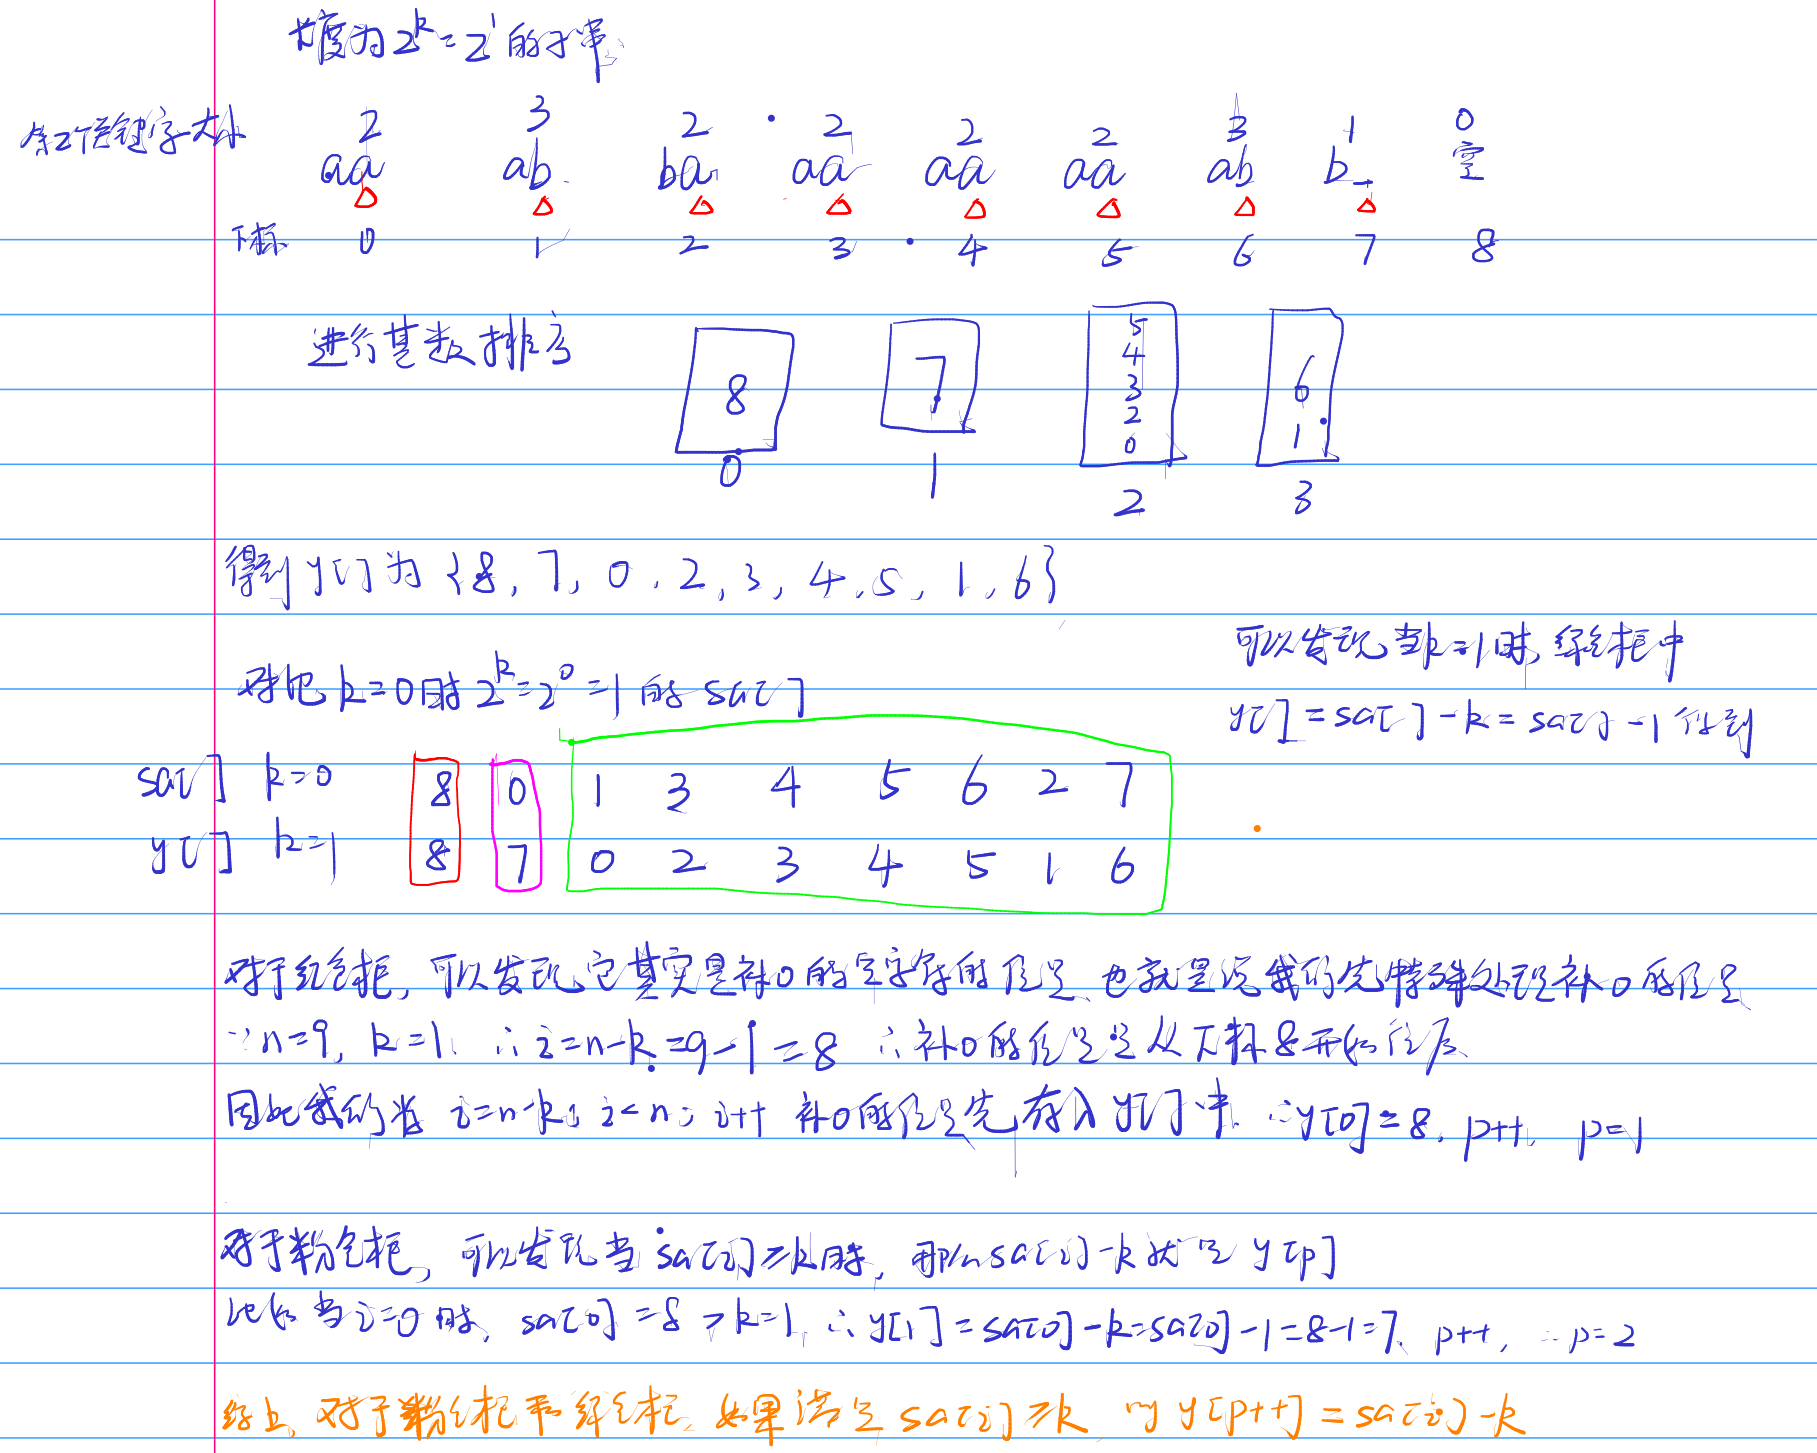 长度为2^k=2^1的子串
第二关键字大小 2 3 2 2 2 2 3 1 0
aa ab ba aa aa aa ab b_ 空
下标 0 1 2 3 4 5 6 7 8
进行基数排序
8 7 5 4 3 2 0 6 1
0 1 2 3
得到y[]为{8,7,0,2,3,4,5,1,6}
可以发现,当k=1时,绿色框中
y[]=sa[]-k=sa[]-1得到
对比k=0时2^k=2^0=1的sa[]
sa[] k=0 8 0 1 3 4 5 6 2 7
y[] k=1 8 7 0 2 3 4 5 1 6
对于红色框,可以发现,它其实是补0的空字符的位置,也就是说我们先特殊处理补0的位置
∵n=9, k=1, ∴i=n-k=9-1=8 ∴补0的位置是从下标8开始往后
因此我们将 i=n-k; i<n; i++ 补0的位置先存入y[]中, ∴y[0]=8, p++, p=1
对于粉色框,可以发现当sa[i]≥k时,那么sa[i]-k就是y[p]
比如当i=0时, sa[0]=8>k=1, ∴y[1]=sa[0]-k=sa[0]-1=8-1=7, p++, ∴p=2
综上,对于粉色框和绿色框,如果满足sa[i]≥k,则y[p++]=sa[i]-k